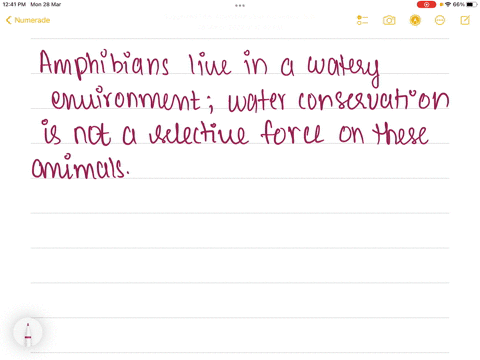 12:41 PM Mon 28 Mar
66%
Numerade
Amphibians live in a watery
environment; water conservation
is not a selective force on these
animals.